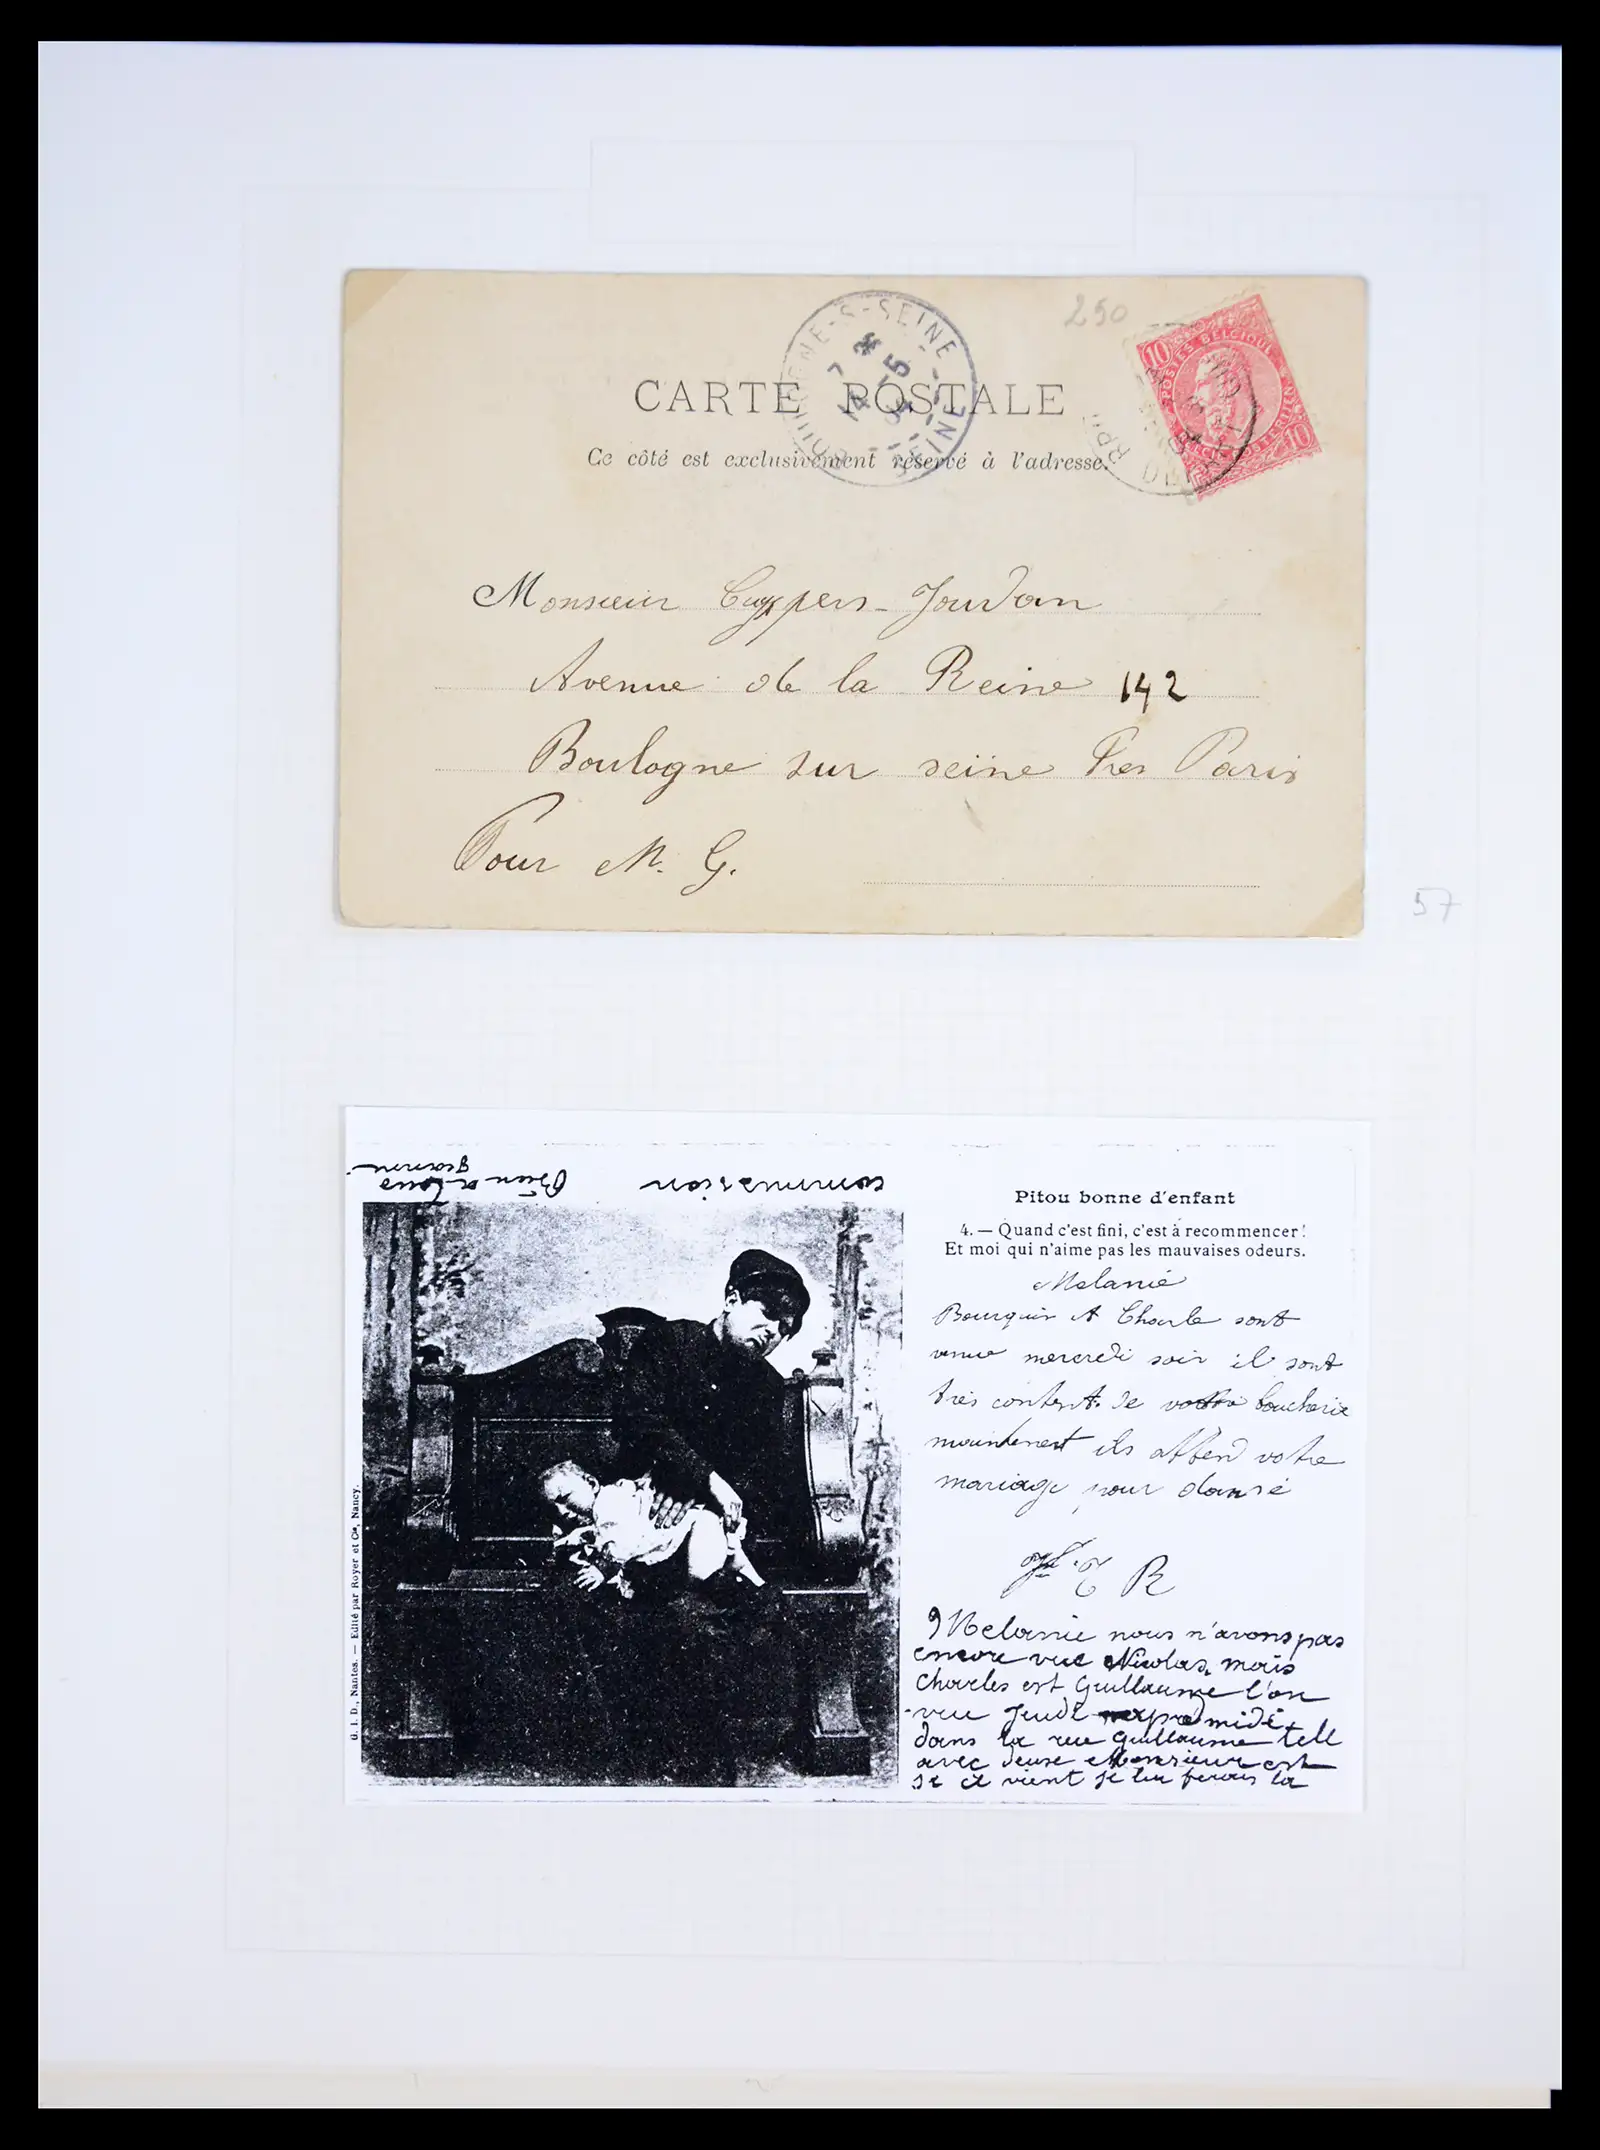 250
BOULOGNE-S-SEINE
SEINE
7 14 -5
10 POSTES BELGIQUE 10
CARTE POSTALE
Ce côté est exclusivement réservé à l'adresse.
Monsieur Cuypers-Jourdan
Avenue de la Reine 142
Boulogne sur seine Pres Paris
Pour M. G.
57
commission
Bien a tous
Pitou bonne d'enfant
4. — Quand c'est fini, c'est à recommencer!
Et moi qui n'aime pas les mauvaises odeurs.
Melanie
Bourquin et Charle sont
venue mercredi soir il sont
très contente de boucherie
maintenent ils attend votre
mariage pour dansé
R
Melanie nous n'avons pas
encore vue Nicolas, mais
Charles est Guillaume l'on
vue Jeudi midi
dans la rue Guillaume tell
avec deuse Monsieur est
si il vient je lui ferais la
G. I. D., Nantes. — Edité par Royer et Cie, Nancy.